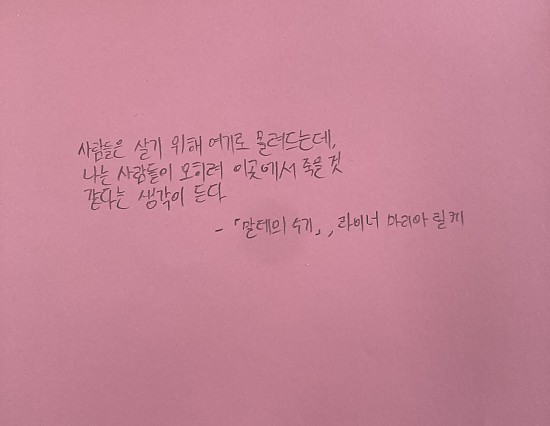 사람들은 살기 위해 여기로 몰려드는데,
나는 사람들이 오히려 이곳에서 죽을 것
같다는 생각이 든다
- 「말테의 수기」, 라이너 마리아 릴케